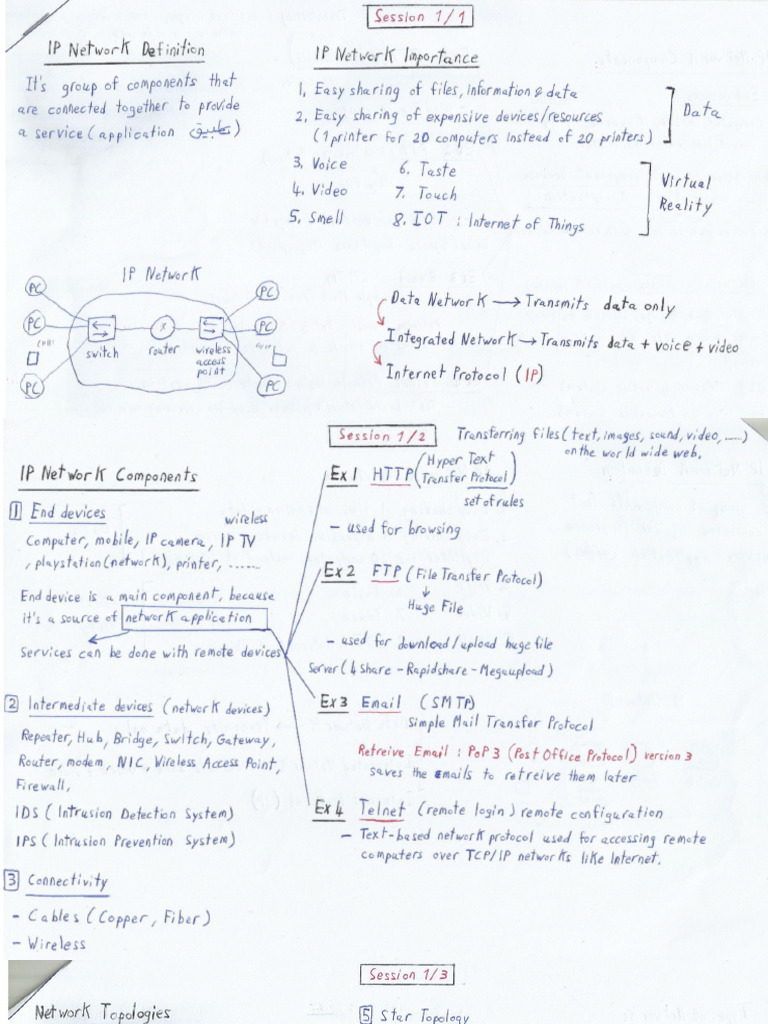 Session 1/1
IP Network Definition
It's group of components that
are connected together to provide
a service (application تطبيق)
IP Network Importance
1. Easy sharing of files, information & data
2. Easy sharing of expensive devices/resources
(1 printer for 20 computers instead of 20 printers)
Data
3. Voice
4. Video
5. Smell
6. Taste
7. Touch
8. IOT : Internet of Things
Virtual
Reality
IP Network
PC
PC
PC
PC
PC
PC
switch
x
router
wireless
access
point
Data Network → Transmits data only
Integrated Network → Transmits data + voice + video
Internet Protocol (IP)
Session 1/2
IP Network Components
1 End devices
wireless
Computer, mobile, IP camera, IP TV
, playstation (network), printer, .......
End device is a main component, because
it's a source of network application
Services can be done with remote devices
2 Intermediate devices (network devices)
Repeater, Hub, Bridge, Switch, Gateway,
Router, modem, NIC, Wireless Access Point,
Firewall,
IDS (Intrusion Detection System)
IPS (Intrusion Prevention System)
3 Connectivity
- Cables (Copper, Fiber)
- Wireless
Transferring files (text, images, sound, video, .....)
on the world wide web.
Ex 1 HTTP (Hyper Text
Transfer Protocol)
set of rules
- used for browsing
Ex 2 FTP (File Transfer Protocol)
Huge File
- used for download/upload huge file
Server (4share - Rapidshare - Megaupload)
Ex 3 Email (SMTP)
Simple Mail Transfer Protocol
Retreive Email : PoP3 (Post Office Protocol) version 3
saves the emails to retreive them later
Ex 4 Telnet (remote login) remote configuration
- Text-based network protocol used for accessing remote
computers over TCP/IP networks like Internet.
Session 1/3
Network Topologies
5 Star Topology